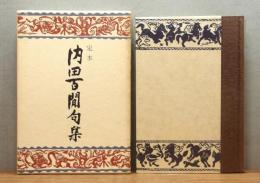 定本
内田百閒句集